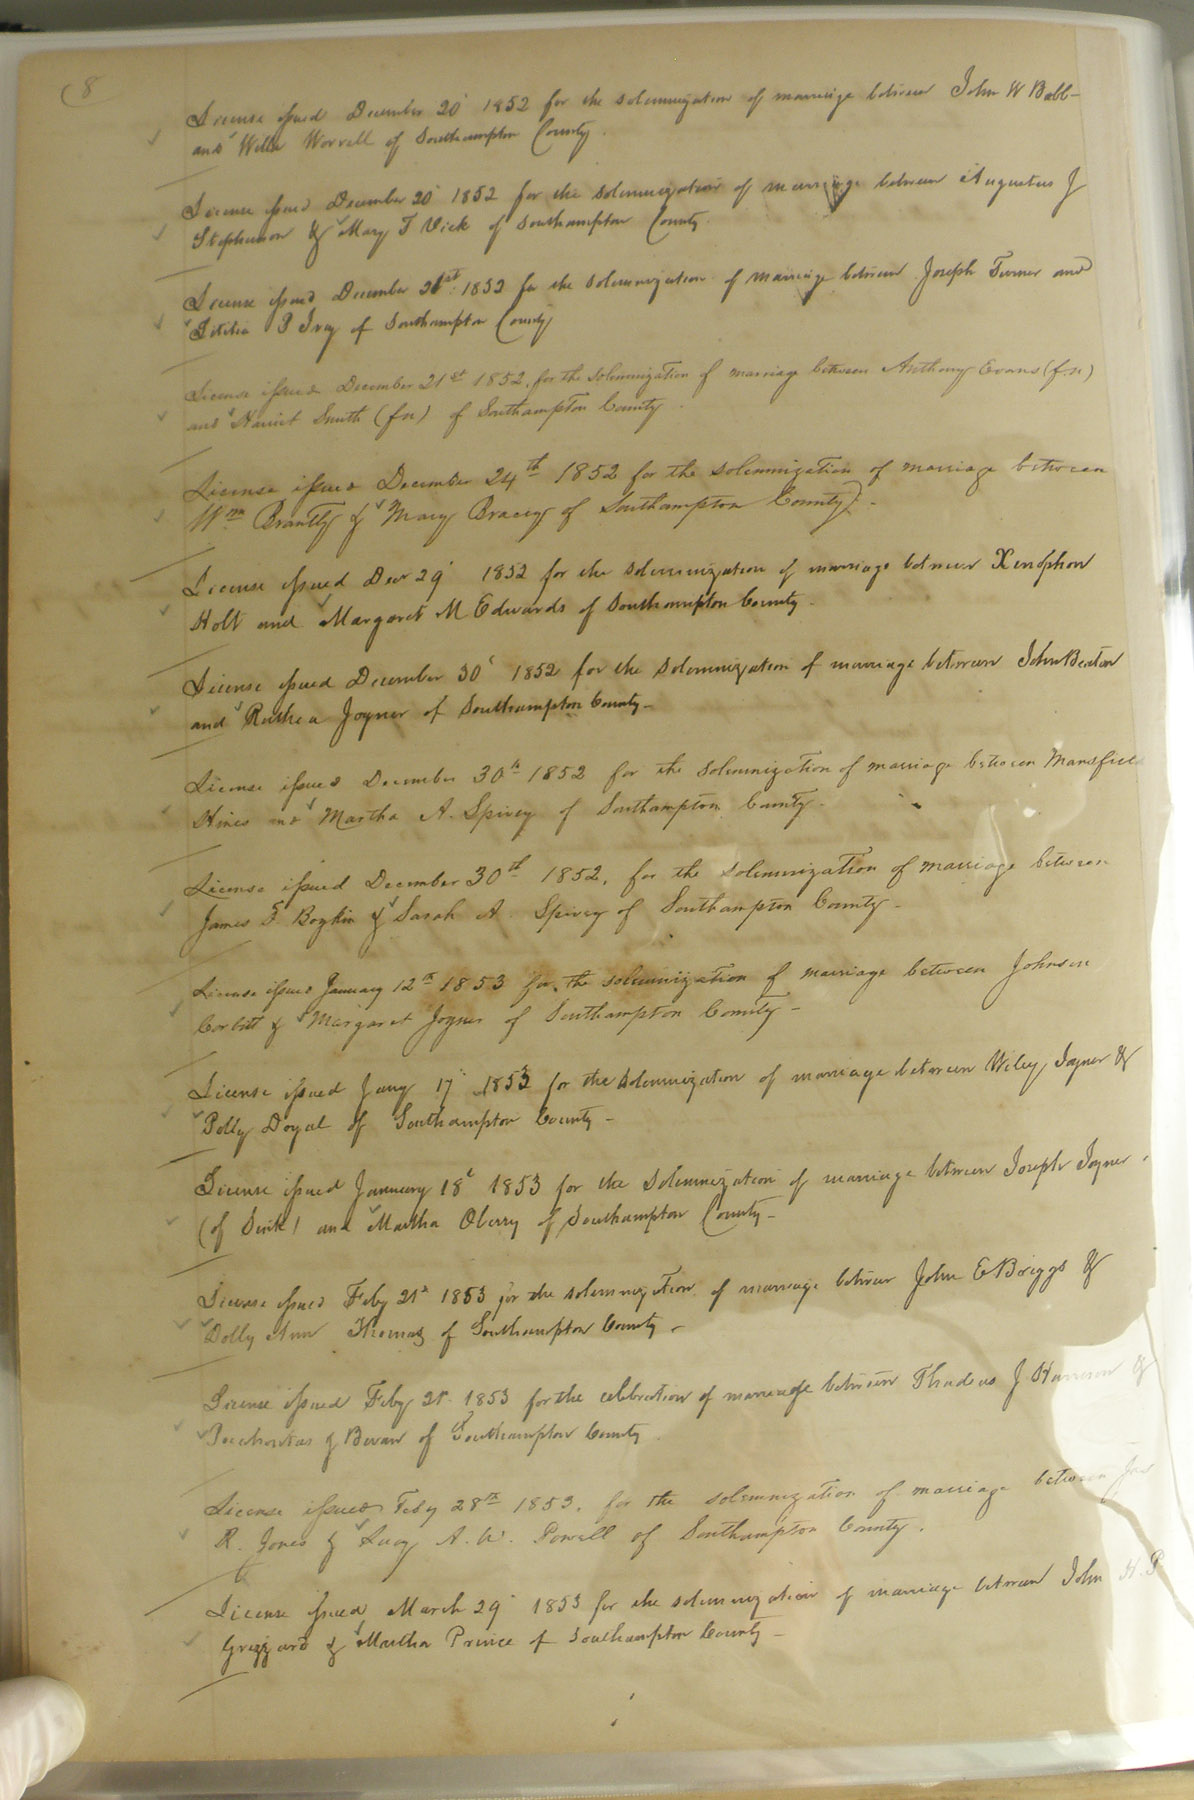 8
License issued December 20 1852 for the solemnization of marriage between John W Babb
and Willa Worrell of Southampton County.
License issued December 20 1852 for the solemnization of marriage between Augustus J
Stephenson & Mary T Vick of Southampton County
License issued December 21st 1852 for the solemnization of marriage between Joseph Turner and
Litilia P Ivy of Southampton County
License issued December 21st 1852, for the solemnization of marriage between Anthony Evans (f.n)
and Harriet Smith (fn) of Southampton County.
License issued December 24th 1852 for the solemnization of marriage between
Wm Brantly & Mary Bracey of Southampton County.
License issued Decr 29 1852 for the solemnization of marriage between Xenophon
Holt and Margaret M Edwards of Southampton County.
License issued December 30 1852 for the solemnization of marriage between John Beaton
and Ruthea Joyner of Southampton County-
License issued December 30th 1852 for the solemnization of marriage between Mansfield
Hines and Martha A. Spivey of Southampton County.
License issued December 30th 1852, for the solemnization of marriage between
James Boykin & Sarah A. Spivey of Southampton County-
License issued January 12th 1853 for the solemnization of marriage between Johnson
Corbitt & Margaret Joyner of Southampton County-
License issued Jany 17 1853 for the solemnization of marriage between Wiley Joyner &
Polly Doyal of Southampton County-
License issued January 18 1853 for the solemnization of marriage between Joseph Joyner
(of ) and Martha Oberry of Southampton County-
License issued Feby 21st 1853 for the solemnization of marriage between John E Briggs &
Dolly Ann Thomas of Southampton County-
License issued Feby 21 1853 for the celebration of marriage between Thadeus J Harrison &
Pocahontas Bevan of Southampton County
License issued Feby 28th 1853, for the solemnization of marriage between Jas
R. Jones & Lucy A. W. Powell of Southampton County.
License issued March 29 1853 for the solemnization of marriage between John H. P
Grizzard & Martha Prince of Southampton County-